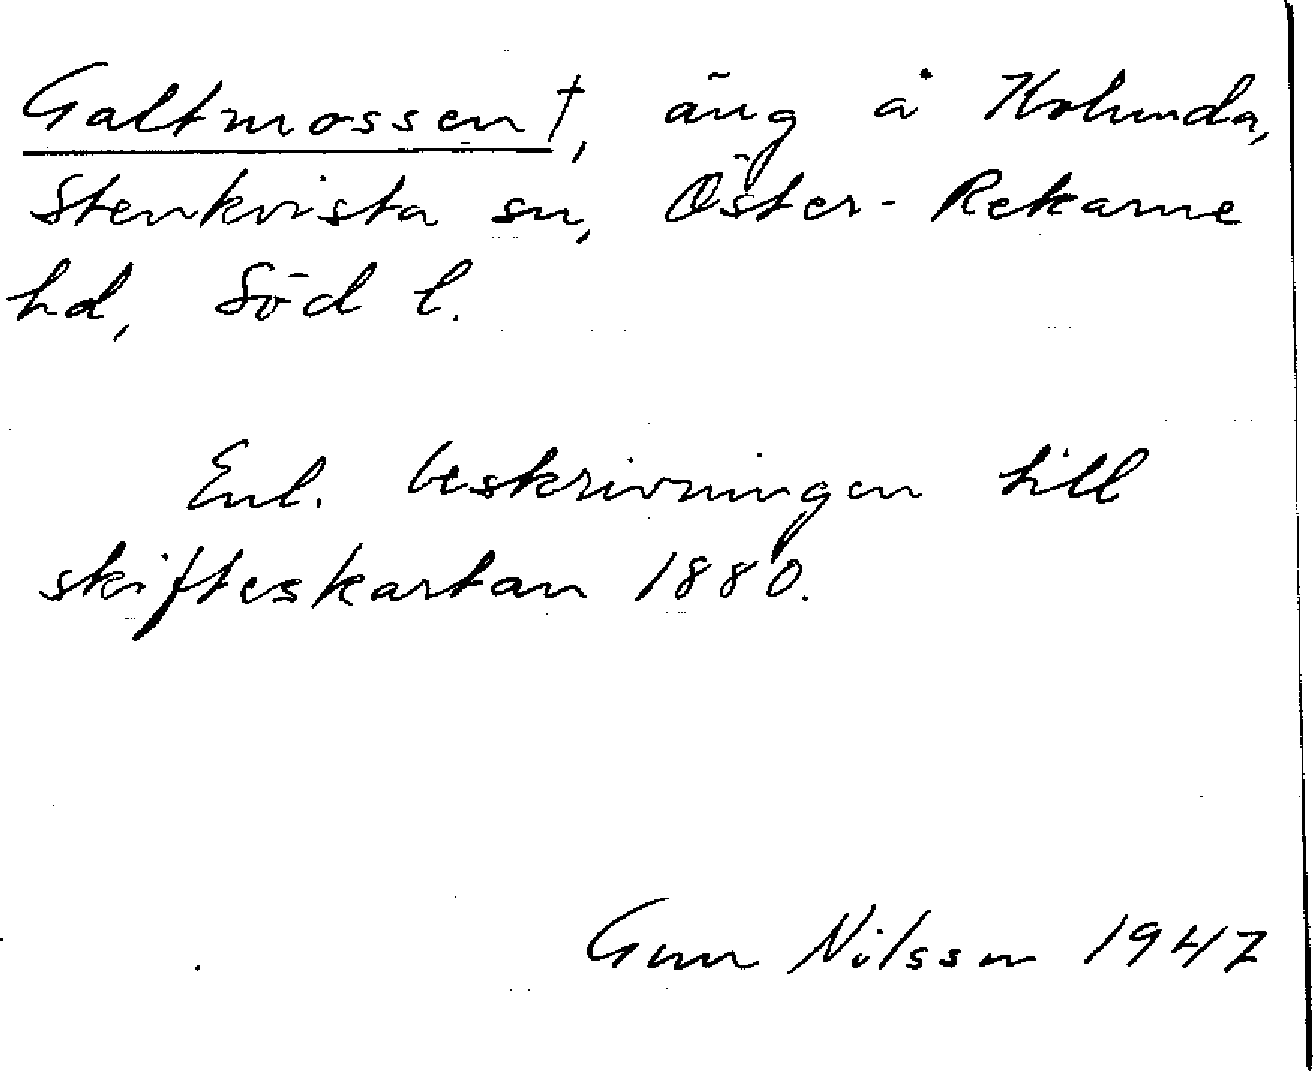 Galtmossen†, äng å Kolunda,
Stenkvista sn, Öster-Rekarne
hd, Söd l.
Enl. beskrivningen till
skifteskartan 1880.
Gun Nilsson 1947